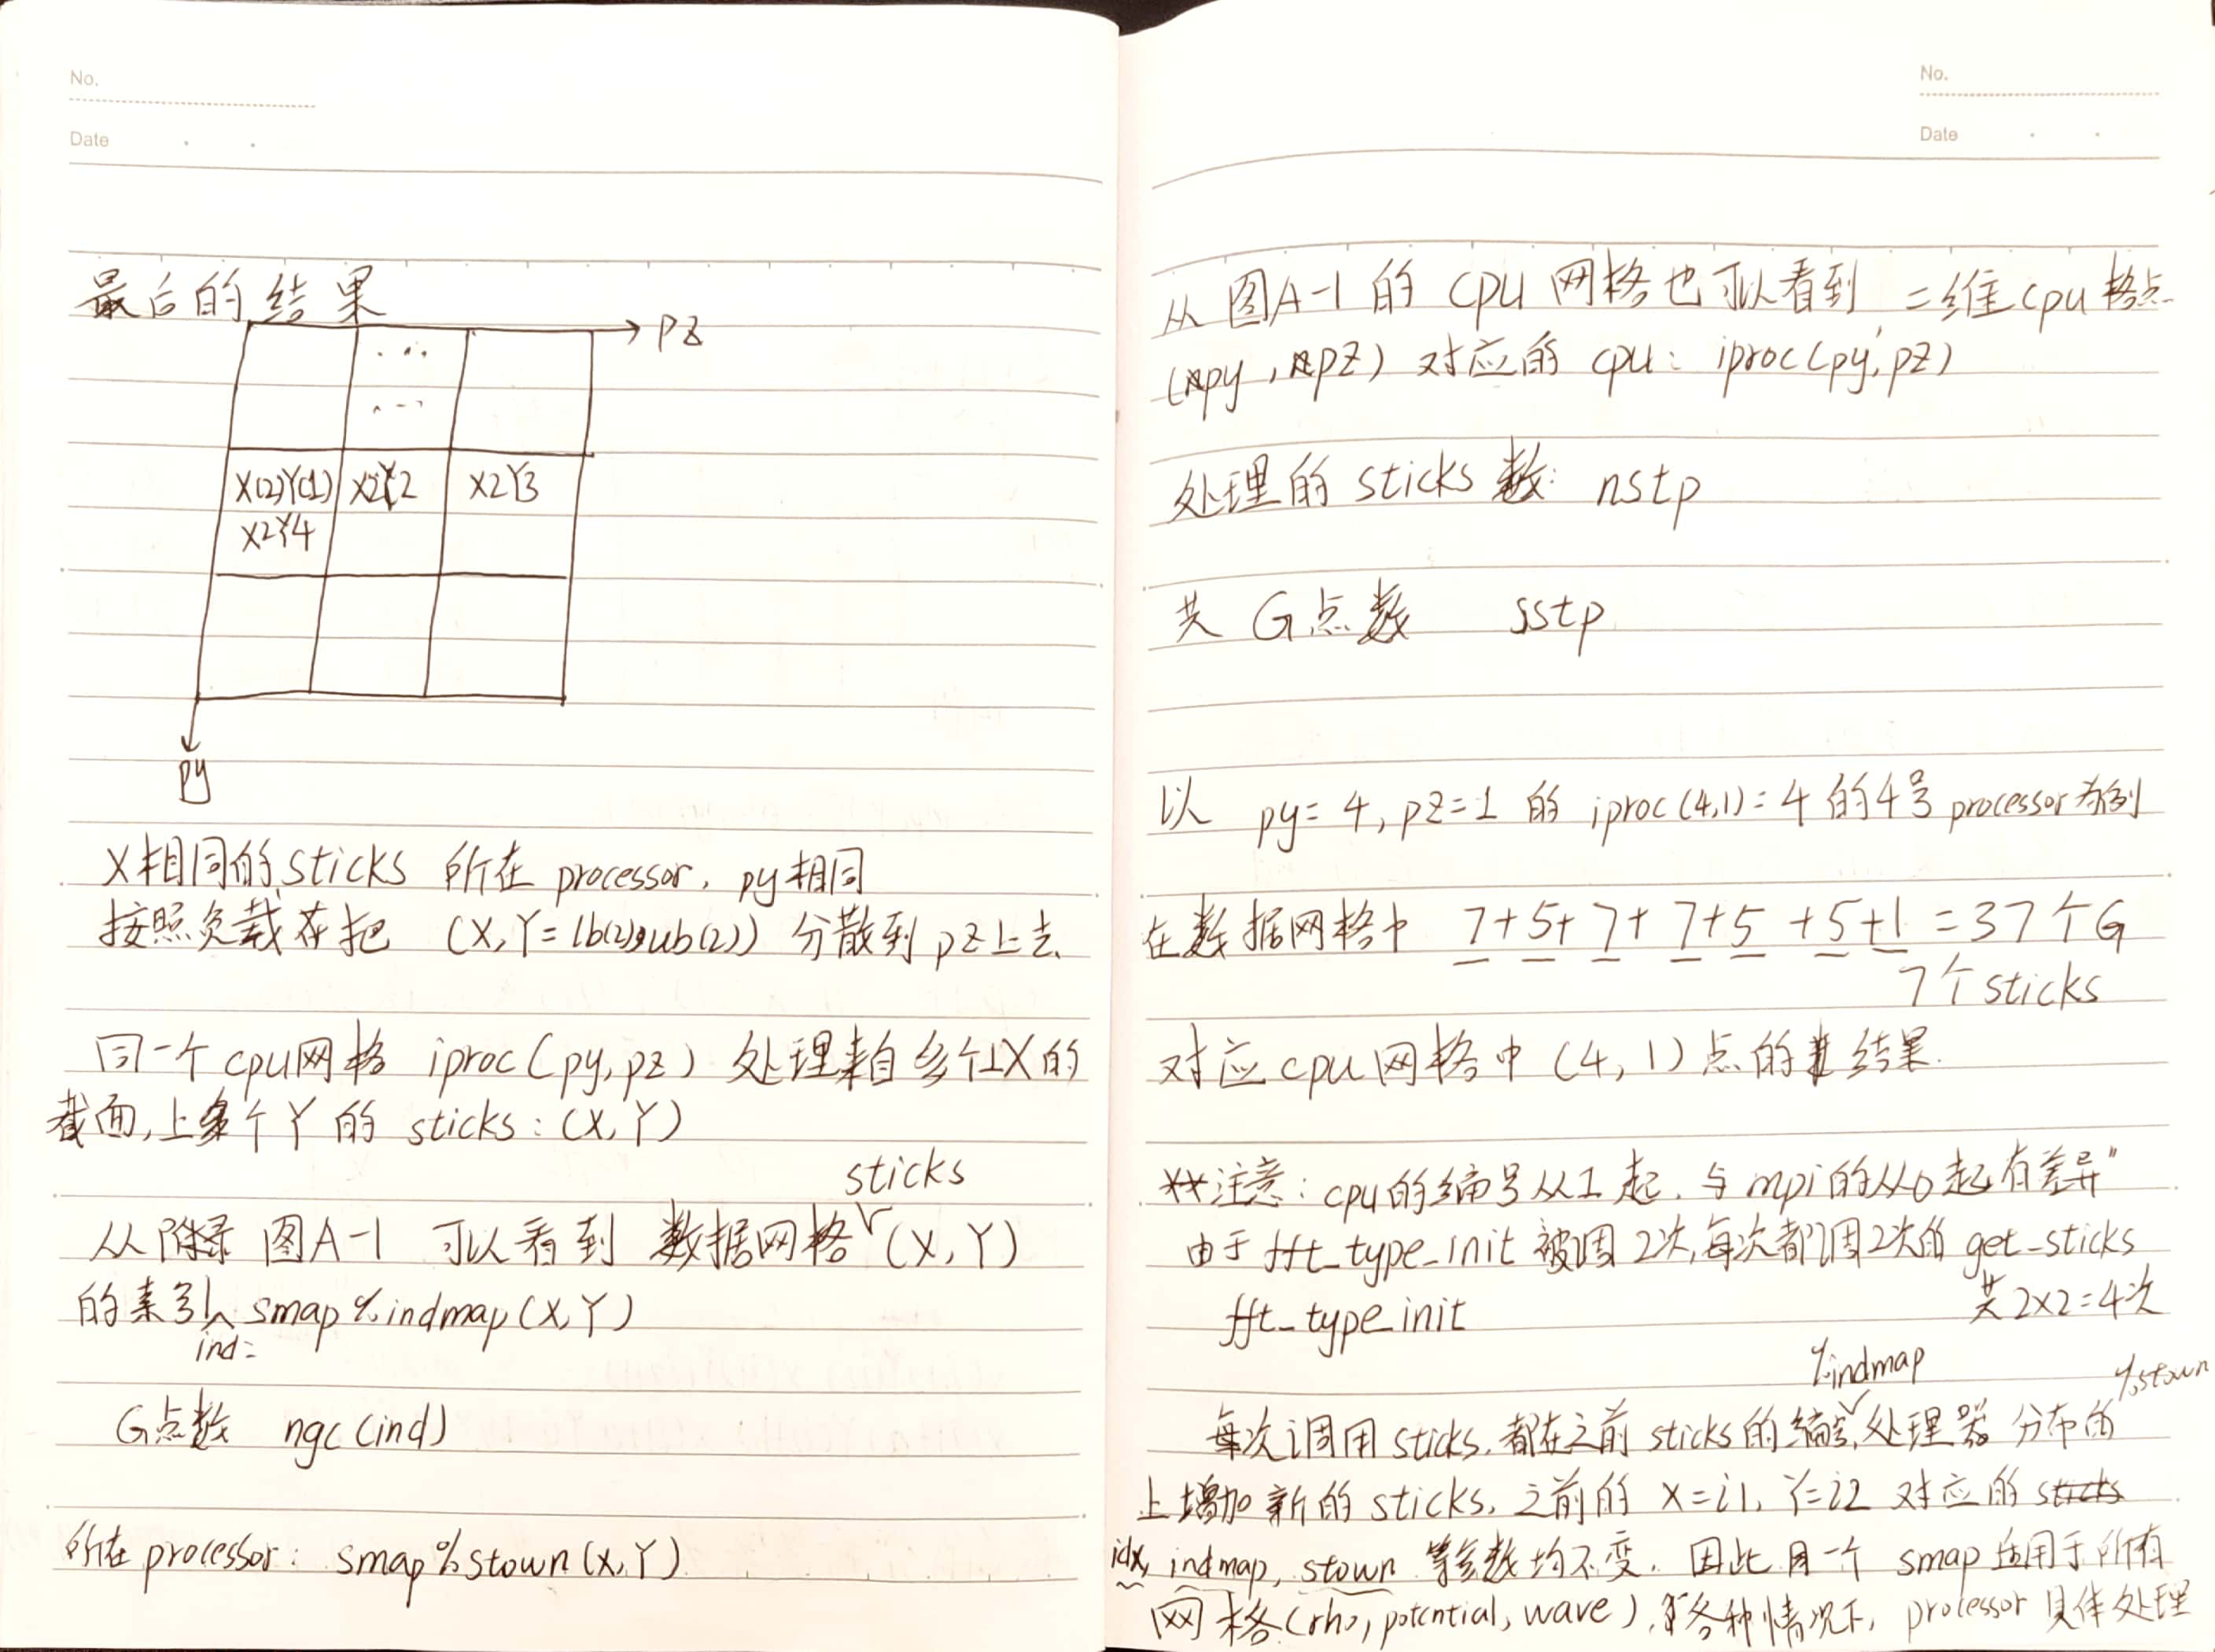 No.
Date
最后的结果
pz
X(2)Y(1) X2Y2 X2Y3
X2Y4
py
X相同的sticks 所在processor, py相同
按照负载在把 (X,Y=lb(2),ub(2)) 分散到pz上去.
同一个cpu网格 iproc(py,pz) 处理来自多个X的
截面,上多个Y的 sticks:(X,Y)
sticks
从附录 图A-1 可以看到 数据网格(X,Y)
的索引 smap%indmap(X,Y)
ind=
G点数 ngc(ind)
所在processor: smap%stown(X,Y)
No.
Date
从图A-1的CPU网格也可以看到, 二维cpu格点
(py, pz) 对应的cpu: iproc(py,pz)
处理的sticks数: nstp
共G点数 sstp
以 py=4, pz=1 的 iproc(4,1)=4 的4号processor为例
在数据网格中 7+5+7+7+5+5+1=37个G
7个sticks
对应cpu网格中(4,1)点的结果.
**注意: cpu的编号从1起. 与mpi的从0起有差异"
由于 fft_type_init 被调2次,每次都调2次的 get_sticks
fft_type_init 共2x2=4次
%indmap %stown
每次调用sticks, 都在之前sticks的编号,处理器分布的
上增加新的sticks, 之前的 X=i1, Y=i2 对应的
idx, indmap, stown 等参数均不变. 因此用一个 smap 适用于所有
网格(rho, potential, wave), 各种情况下, processor具体处理